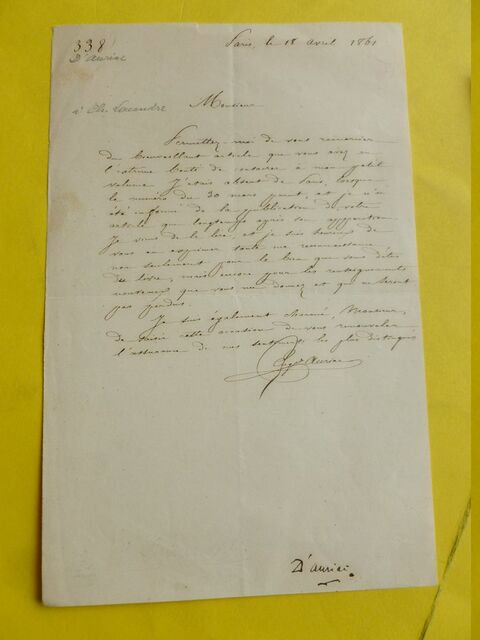 338
D'auriac
Paris, le 18 avril 1861
à Ch.
Monsieur
Permettez-moi de vous remercier
du bienveillant article que vous avez eu
l'extrême bonté de consacrer à mon petit
volume. J'étais absent de Paris, lorsque
le numéro du 30 mars parut, et je n'ai
été informé de la publication de votre
article que longtemps après son apparition.
Je viens de le lire, et je suis heureux de
vous en exprimer toute ma reconnaissance,
non seulement pour le bien que vous dites
du livre, mais encore pour les renseignements
nouveaux que vous me donnez et qui ne seront
pas perdus.
Je suis également charmé, Monsieur,
de saisir cette occasion de vous renouveler
l'assurance de mes sentiments les plus distingués
Auriac
D'auriac.